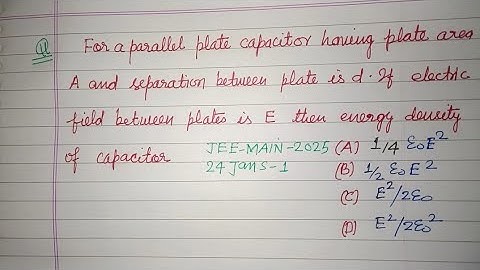 11 For a parallel plate capacitor having plate area
A and separation between plate is d. If electric
field between plates is E then energy density
of capacitor JEE-MAIN-2025 (A) 1/4 ε₀E²
24 Jan S-1 (B) 1/2 ε₀E²
(C) E²/2ε₀
(D) E²/2ε₀²